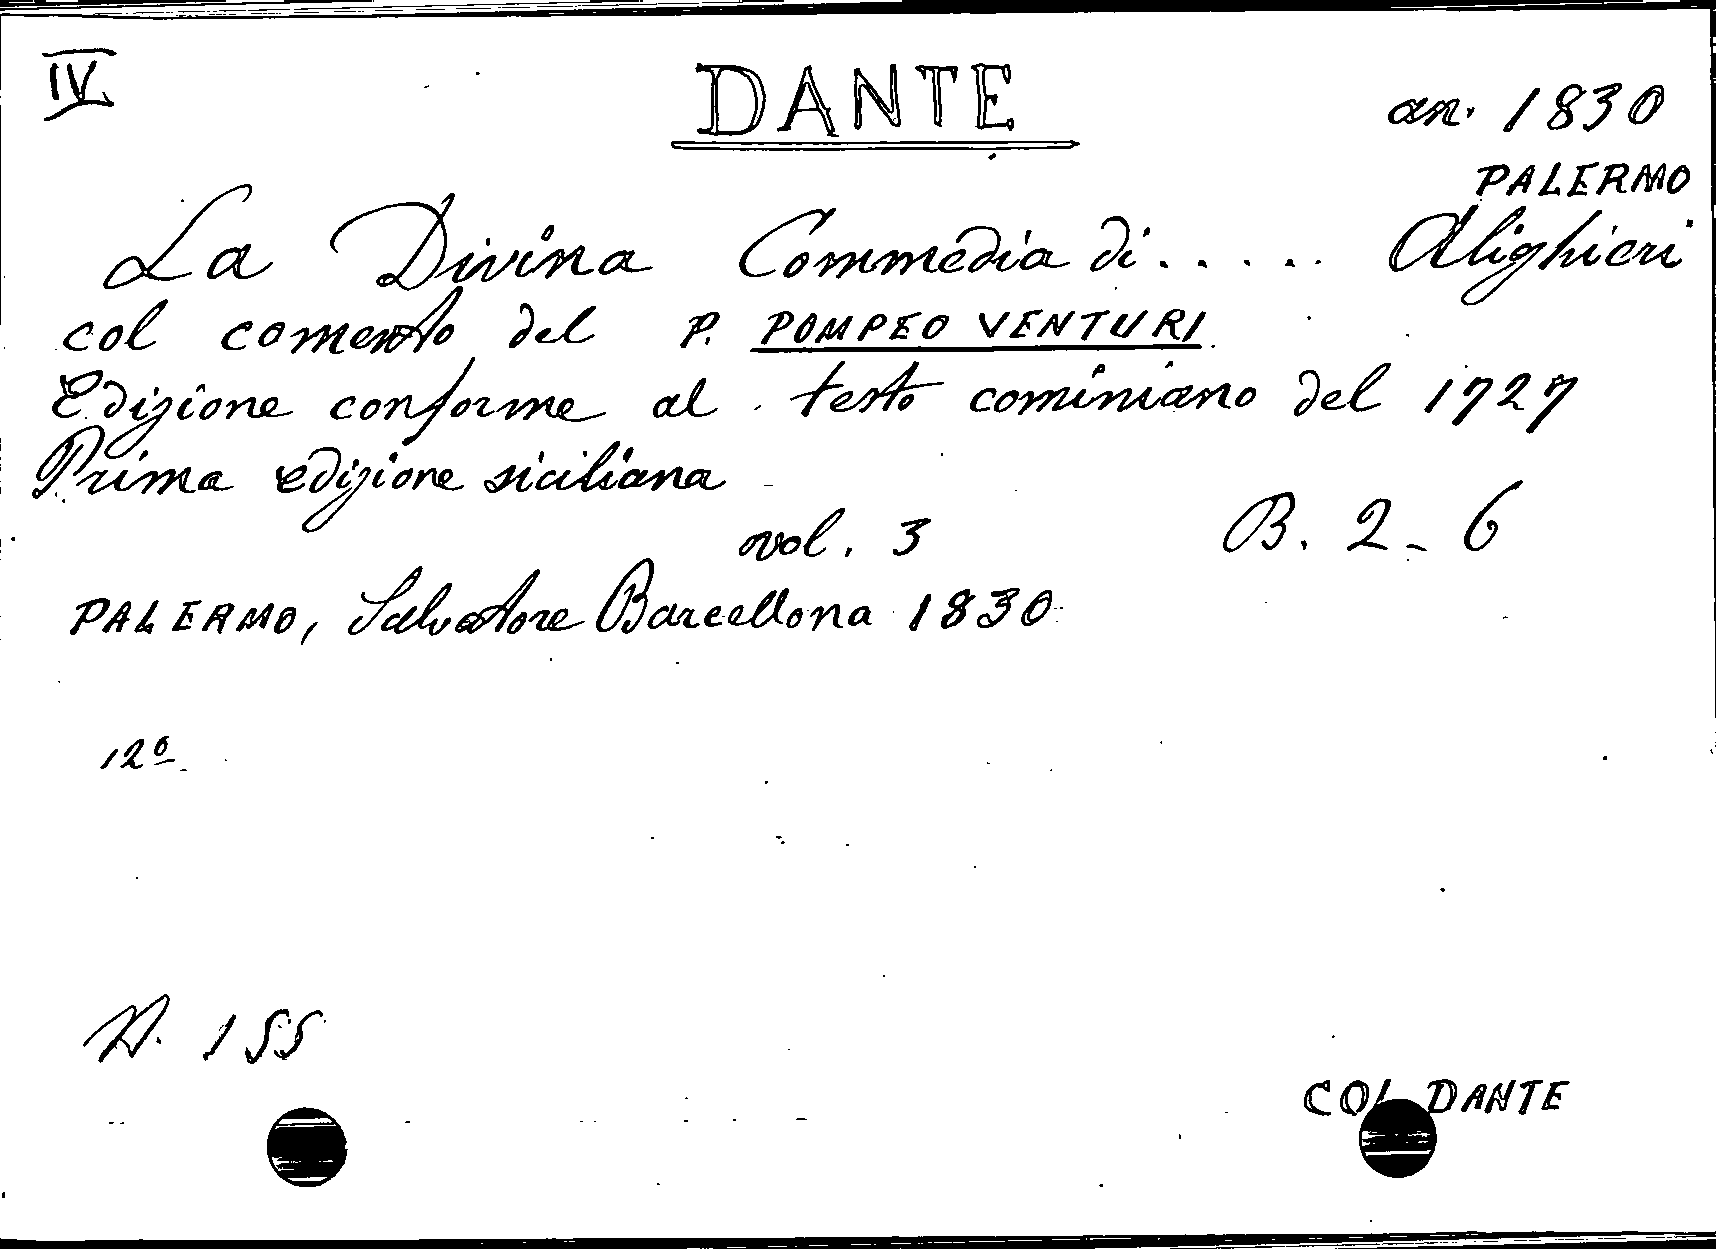 IV
DANTE
an. 1830
PALERMO
La Divina Commedia di..... Alighieri
col comento del P. POMPEO VENTURI
Edizione conforme al testo cominiano del 1727
Prima edizione siciliana
vol. 3 B. 2-6
PALERMO, Salvatore Barcellona 1830
12º
N. 155
COL DANTE